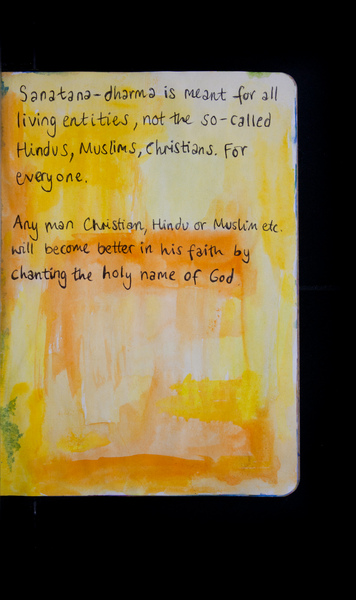 Sanatana-dharma is meant for all
living entities, not the so-called
Hindus, Muslims, Christians. For
everyone.
Any man Christian, Hindu or Muslim etc.
will become better in his faith by
chanting the holy name of God.